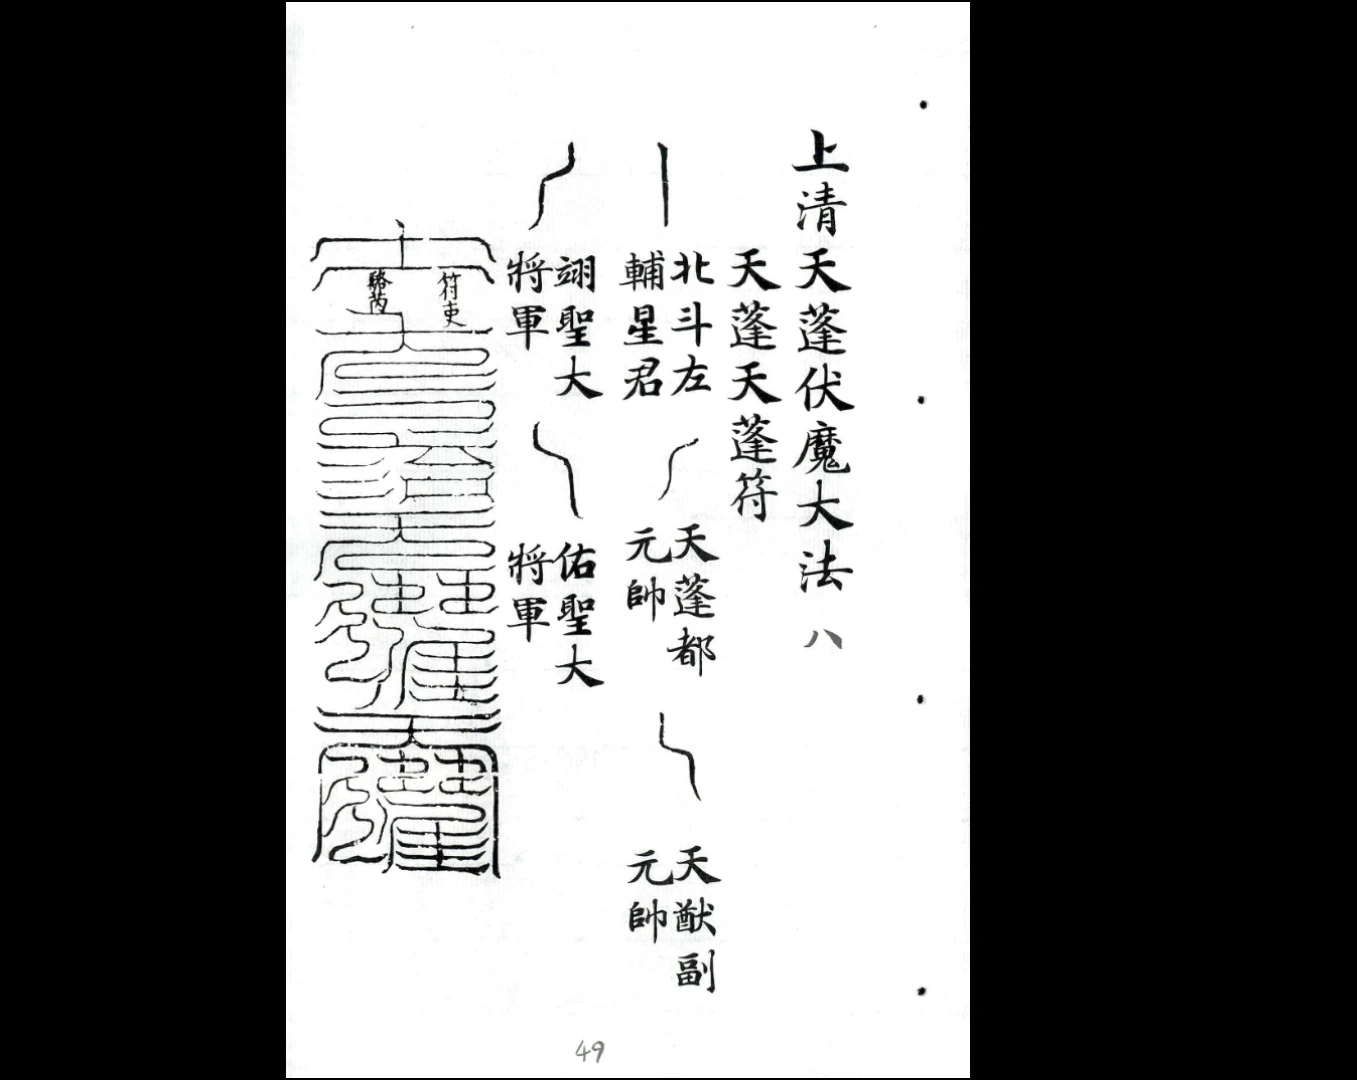 上清天蓬伏魔大法 八
天蓬天蓬符
北斗左輔星君
天蓬都元帥
天猷副元帥
翊聖大將軍
佑聖大將軍
符吏
49